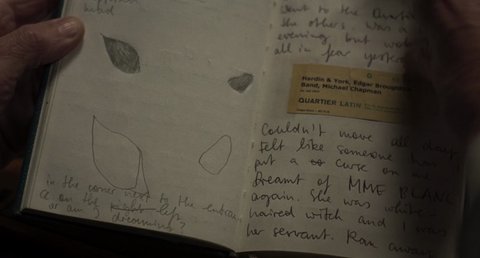 in the corner next to the
on the right left,
or am I dreaming?
went to the
the others. was a
evening, but
all in fear
Hardin & York, Edgar Broughton
Band, Michael Chapman
QUARTIER LATIN
Couldn't move all day.
Felt like someone
put a curse on
Dreamt of MME BLANC
again. She was white-
haired witch and I was
her servant. Ran away